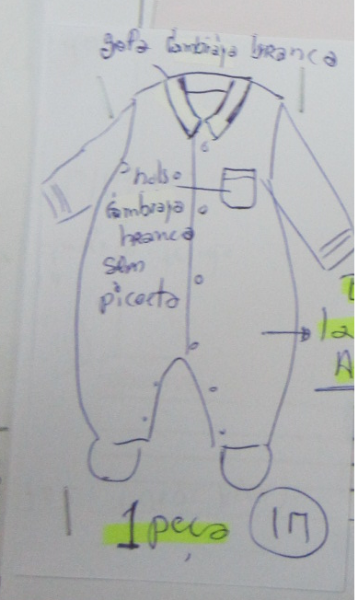 gola Cambraia branca
bolso
Cambraia
branca
sem
picoeta
1 peça
17